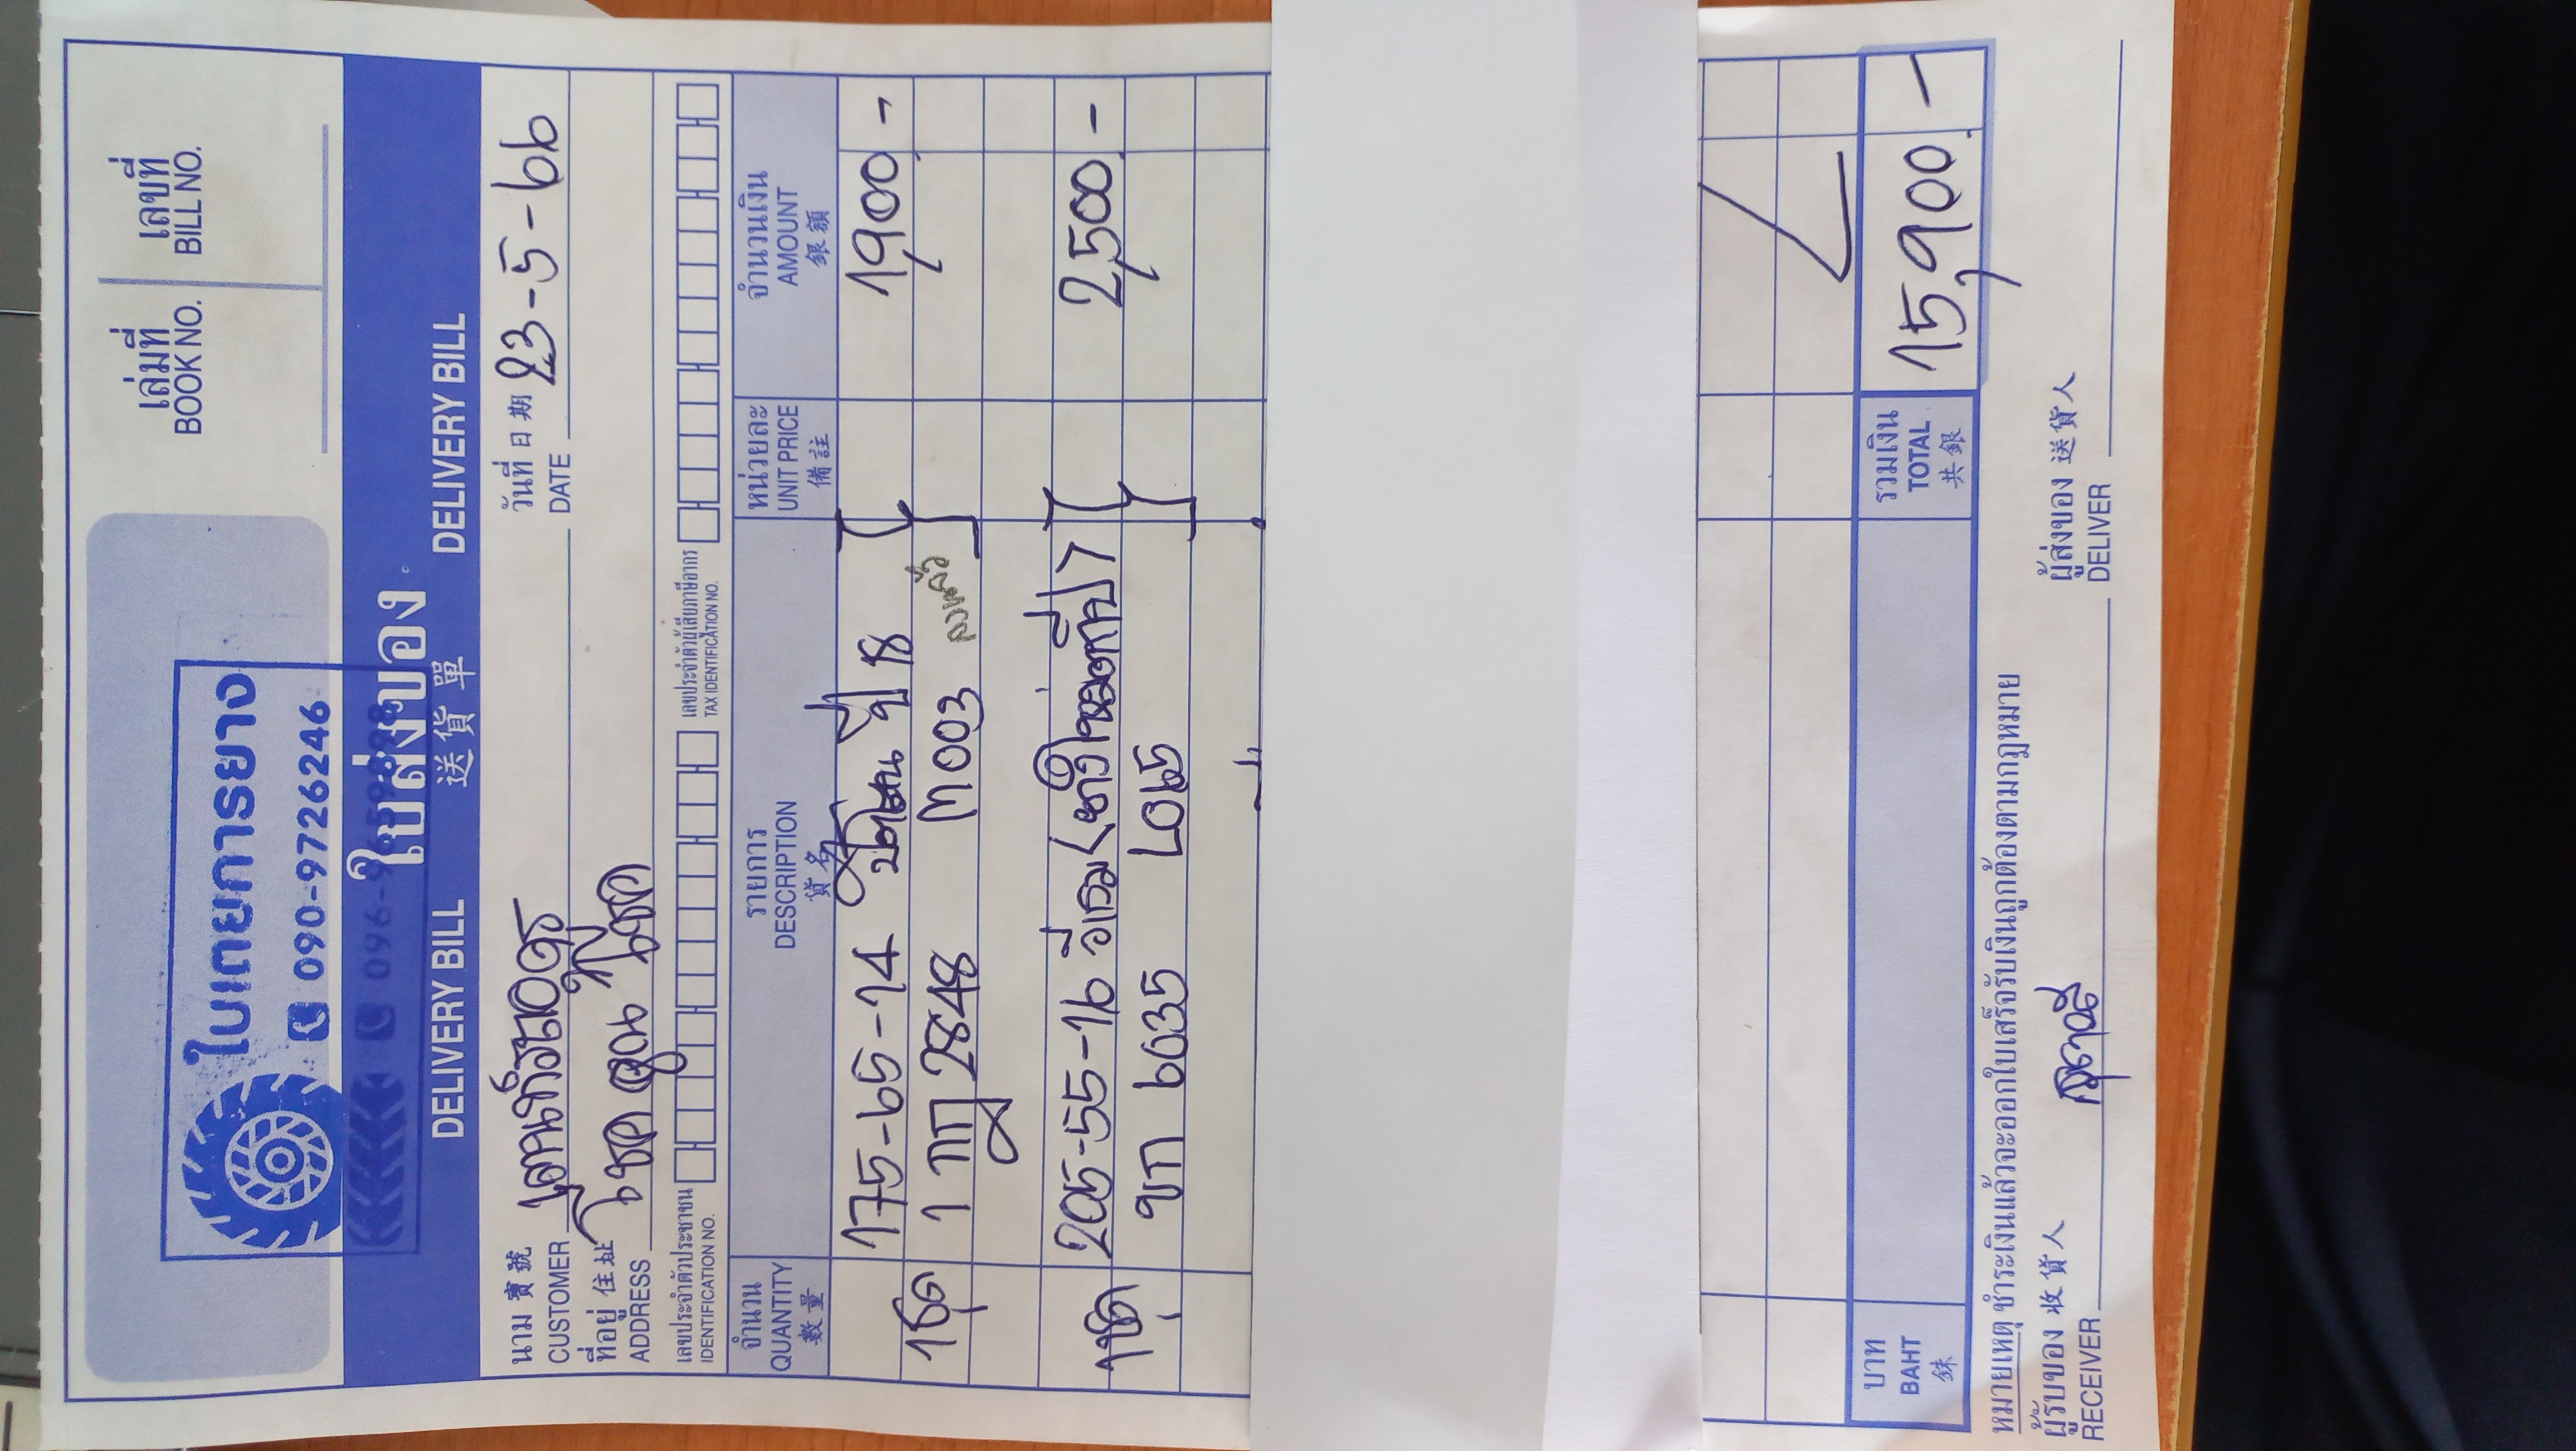 เล่มที่
BOOK NO.
เลขที่
BILL NO.
ใบเตยการยาง
090-9726246
ใบส่งของ
DELIVERY BILL 送貨單 DELIVERY BILL
วันที่ 日期 23-5-66
DATE
นาม 寶號
CUSTOMER
ที่อยู่ 住址 โชค
ADDRESS
เลขประจำตัวประชาชน
IDENTIFICATION NO.
เลขประจำตัวผู้เสียภาษีอากร
TAX IDENTIFICATION NO.
จำนวน
QUANTITY
數量
รายการ
DESCRIPTION
貨名
หน่วยละ
UNIT PRICE
備註
จำนวนเงิน
AMOUNT
銀額
175-65-14 ปี 18 1,900.-
1ชุด 1 กฎ 2848 M003
205-55-16 2,500.-
1ชุด ขก 6635 L045
บาท
BAHT
銖
รวมเงิน
TOTAL
共銀
15,900.-
หมายเหตุ ชำระเงินแล้วจะออกใบเสร็จรับเงินถูกต้องตามกฎหมาย
ผู้รับของ 收貨人
RECEIVER
ผู้ส่งของ 送貨人
DELIVER